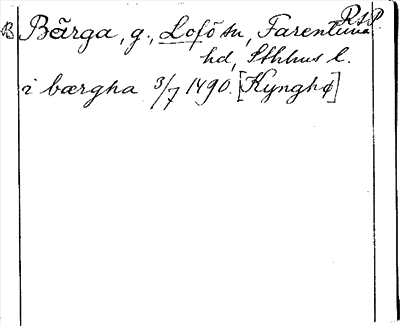 B Bärga, g., Lofö sn, Farentuna RAP.
hd, Sthlms l.
i bærgha 3/7 1490. [Kynghø]